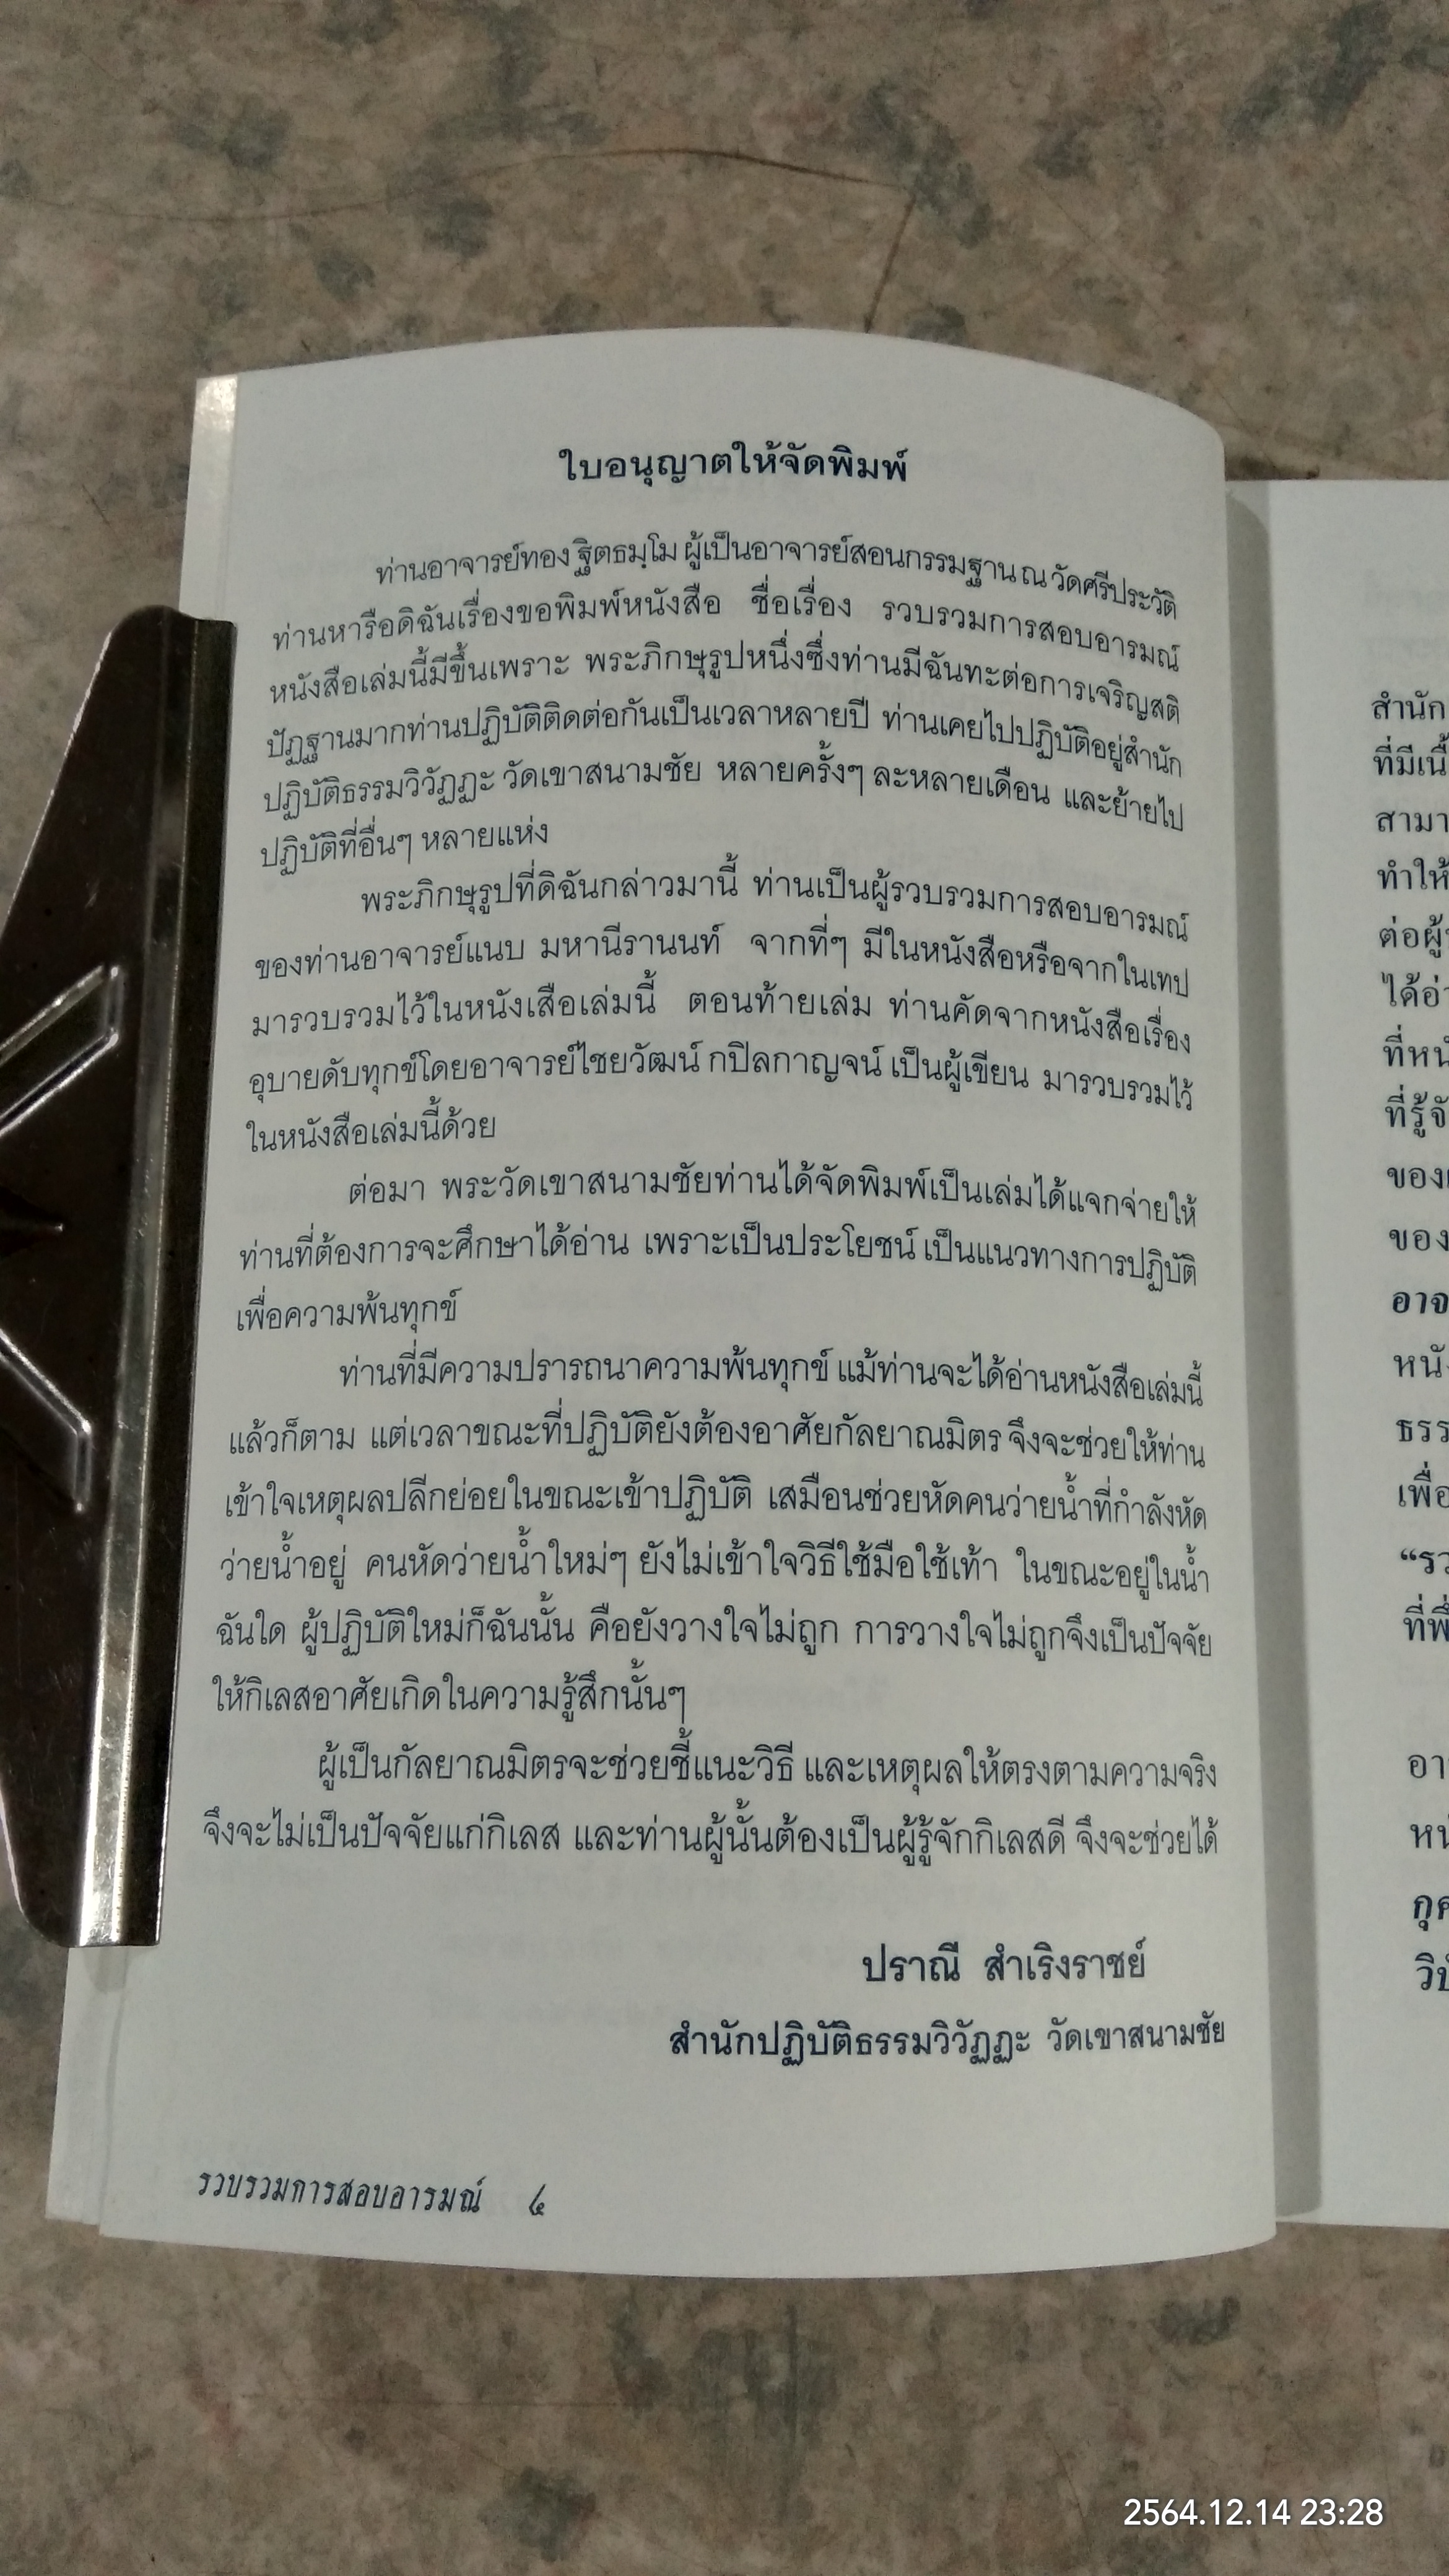 ใบอนุญาตให้จัดพิมพ์
ท่านอาจารย์ทอง ฐิตธมฺโม ผู้เป็นอาจารย์สอนกรรมฐาน ณ วัดศรีประวัติ
ท่านหารือดิฉันเรื่องขอพิมพ์หนังสือ ชื่อเรื่อง รวบรวมการสอบอารมณ์
หนังสือเล่มนี้มีขึ้นเพราะ พระภิกษุรูปหนึ่งซึ่งท่านมีฉันทะต่อการเจริญสติ
ปัฏฐานมากท่านปฏิบัติติดต่อกันเป็นเวลาหลายปี ท่านเคยไปปฏิบัติอยู่สำนัก
ปฏิบัติธรรมวิวัฏฏะ วัดเขาสนามชัย หลายครั้งๆ ละหลายเดือน และย้ายไป
ปฏิบัติที่อื่นๆ หลายแห่ง
พระภิกษุรูปที่ดิฉันกล่าวมานี้ ท่านเป็นผู้รวบรวมการสอบอารมณ์
ของท่านอาจารย์แนบ มหานีรานนท์ จากที่ๆ มีในหนังสือหรือจากในเทป
มารวบรวมไว้ในหนังเสือเล่มนี้ ตอนท้ายเล่ม ท่านคัดจากหนังสือเรื่อง
อุบายดับทุกข์โดยอาจารย์ไชยวัฒน์ กปิลกาญจน์ เป็นผู้เขียน มารวบรวมไว้
ในหนังสือเล่มนี้ด้วย
ต่อมา พระวัดเขาสนามชัยท่านได้จัดพิมพ์เป็นเล่มได้แจกจ่ายให้
ท่านที่ต้องการจะศึกษาได้อ่าน เพราะเป็นประโยชน์ เป็นแนวทางการปฏิบัติ
เพื่อความพ้นทุกข์
ท่านที่มีความปรารถนาความพ้นทุกข์ แม้ท่านจะได้อ่านหนังสือเล่มนี้
แล้วก็ตาม แต่เวลาขณะที่ปฏิบัติยังต้องอาศัยกัลยาณมิตร จึงจะช่วยให้ท่าน
เข้าใจเหตุผลปลีกย่อยในขณะเข้าปฏิบัติ เสมือนช่วยหัดคนว่ายน้ำที่กำลังหัด
ว่ายน้ำอยู่ คนหัดว่ายน้ำใหม่ๆ ยังไม่เข้าใจวิธีใช้มือใช้เท้า ในขณะอยู่ในน้ำ
ฉันใด ผู้ปฏิบัติใหม่ก็ฉันนั้น คือยังวางใจไม่ถูก การวางใจไม่ถูกจึงเป็นปัจจัย
ให้กิเลสอาศัยเกิดในความรู้สึกนั้นๆ
ผู้เป็นกัลยาณมิตรจะช่วยชี้แนะวิธี และเหตุผลให้ตรงตามความจริง
จึงจะไม่เป็นปัจจัยแก่กิเลส และท่านผู้นั้นต้องเป็นผู้รู้จักกิเลสดี จึงจะช่วยได้
ปราณี สำเริงราชย์
สำนักปฏิบัติธรรมวิวัฏฏะ วัดเขาสนามชัย
รวบรวมการสอบอารมณ์ ๔
สำนัก
ที่มีเนื้
สามา
ทำให้
ต่อผู้
ได้อ่
ที่หนั
ที่รู้จั
ของ
ของ
อาจ
หนัง
ธรร
เพื่อ
“รว
ที่พึ่
อา
หน
กุศ
วิป
2564.12.14 23:28